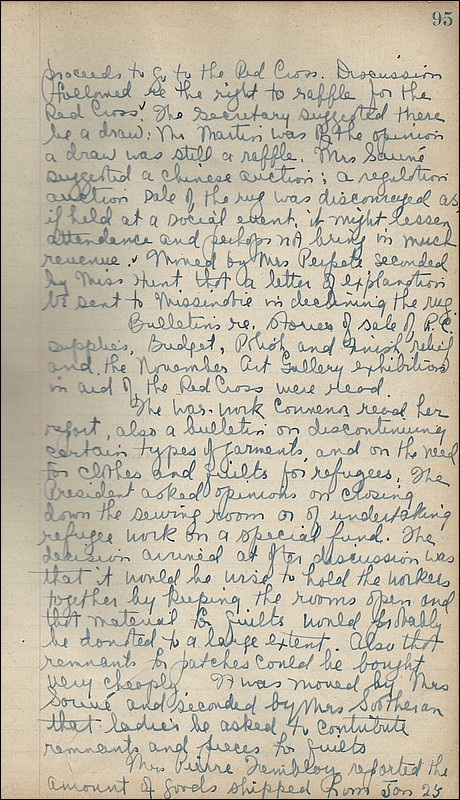 95
proceeds to go to the Red Cross. Discussion
followed re the right to raffle for the
Red Cross. The secretary suggested there
be a draw: Mr Martin was of the opinion
a draw was still a raffle. Mrs Sauvé
suggested a chinese auction; a regulation
auction sale of the rug was discouraged as,
if held at a social event, it might lessen
attendance and perhaps not bring in much
revenue. Moved by Mrs seconded
by Miss Hunt that a letter of explanation
be sent to in declining the rug.
Bulletins re. stories of sale of R.C.
supplies, Budget, Polish and Finish relief
and the November Art Gallery exhibition
in aid of the Red Cross were read.
The war work Convenor read her
report, also a bulletin on discontinuing
certain types of garments, and on the need
for clothes and quilts for refugees. The
President asked opinions on closing
down the sewing room or of undertaking
refugee work on a special fund. The
decision arrived at after discussion was
that it would be wise to hold the workers
together by keeping the rooms open and
that material for quilts would probably
be donated to a large extent. Also that
remnants for patches could be bought
very cheaply. It was moved by Mrs
Sauvé and seconded by Mrs Sootheran
that ladies be asked to contribute
remnants and pieces for quilts
Mrs Pierre Tremblay reported the
amount of goods shipped from Jan 25